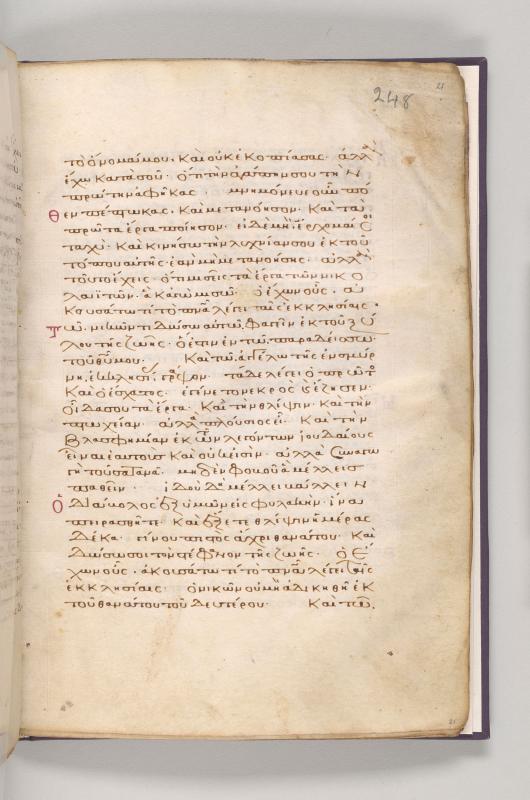 248
τὸ ὄνομά μου· καὶ οὐκ ἐκοπίασας· ἀλλ
ἔχω κατὰ σοῦ· ὅτι τὴν ἀγάπην σου τὴν
πρώτην ἀφῆκας· μνημόνευε οὖν πό
θεν πέπτωκας· καὶ μετανόησον· καὶ τὰ
πρῶτα ἔργα ποίησον· εἰ δὲ μὴ, ἔρχομαί σοι
ταχὺ· καὶ κινήσω τὴν λυχνίαν σου ἐκ τοῦ
τόπου αὐτῆς· ἐὰν μὴ μετανοήσης· ἀλλὰ
τοῦτο ἔχεις· ὅτι μισεῖς τὰ ἔργα τῶν νικο
λαιτῶν· ἃ κἀγὼ μισῶ· ὁ ἔχων οὖς· ἀ
κουσάτω τί τὸ πνα λέγει ταῖς ἐκκλησίαις·
τῶ νικῶντι δώσω αὐτῶ, φαγεῖν ἐκ τοῦ ξύ
λου τῆς ζωῆς· ὅ ἐστιν ἐν τῶ παραδείσω
τοῦ θυ μου· καὶ τῶ ἀγγέλω τῆς ἐν σμύρ
νη, ἐκκλησί, γράψον· τάδε λέγει ὁ πρῶτο
καὶ ὁ ἔσχατος· ὃς ἐγένετο νεκρὸς καὶ ἔζησεν·
οἶδά σου τὰ ἔργα· καὶ τὴν θλίψιν· καὶ τὴν
πτωχείαν· ἀλλὰ πλούσιος εἶ· καὶ τὴν
βλασφημίαν ἐκ τῶν λεγόντων ἰουδαίους
εἶναι ἑαυτοὺς καὶ οὐκ εἰσὶν· ἀλλὰ συναγω
γὴ τοῦ σατανᾶ· μηδὲν φοβοῦ ἃ μέλλεις
παθεῖν· ἰδοὺ δὴ μέλλει βάλλειν
ὁ διάβολος ἐξ ὑμῶν εἰς φυλακὴν· ἵνα
πειρασθῆτε· καὶ ἕξετε θλίψιν ἡμέρας
δέκα· γίνου πιστὸς ἄχρι θανάτου· καὶ
δώσω σοι τὸν στέφανον τῆς ζωῆς· ὁ ἔ
χων οὖς· ἀκουσάτω τί τὸ πνα λέγει ταῖς
ἐκκλησίαις· ὁ νικῶν οὐ μὴ ἀδικηθῆ ἐκ
τοῦ θανάτου τοῦ δευτέρου· καὶ τῶ